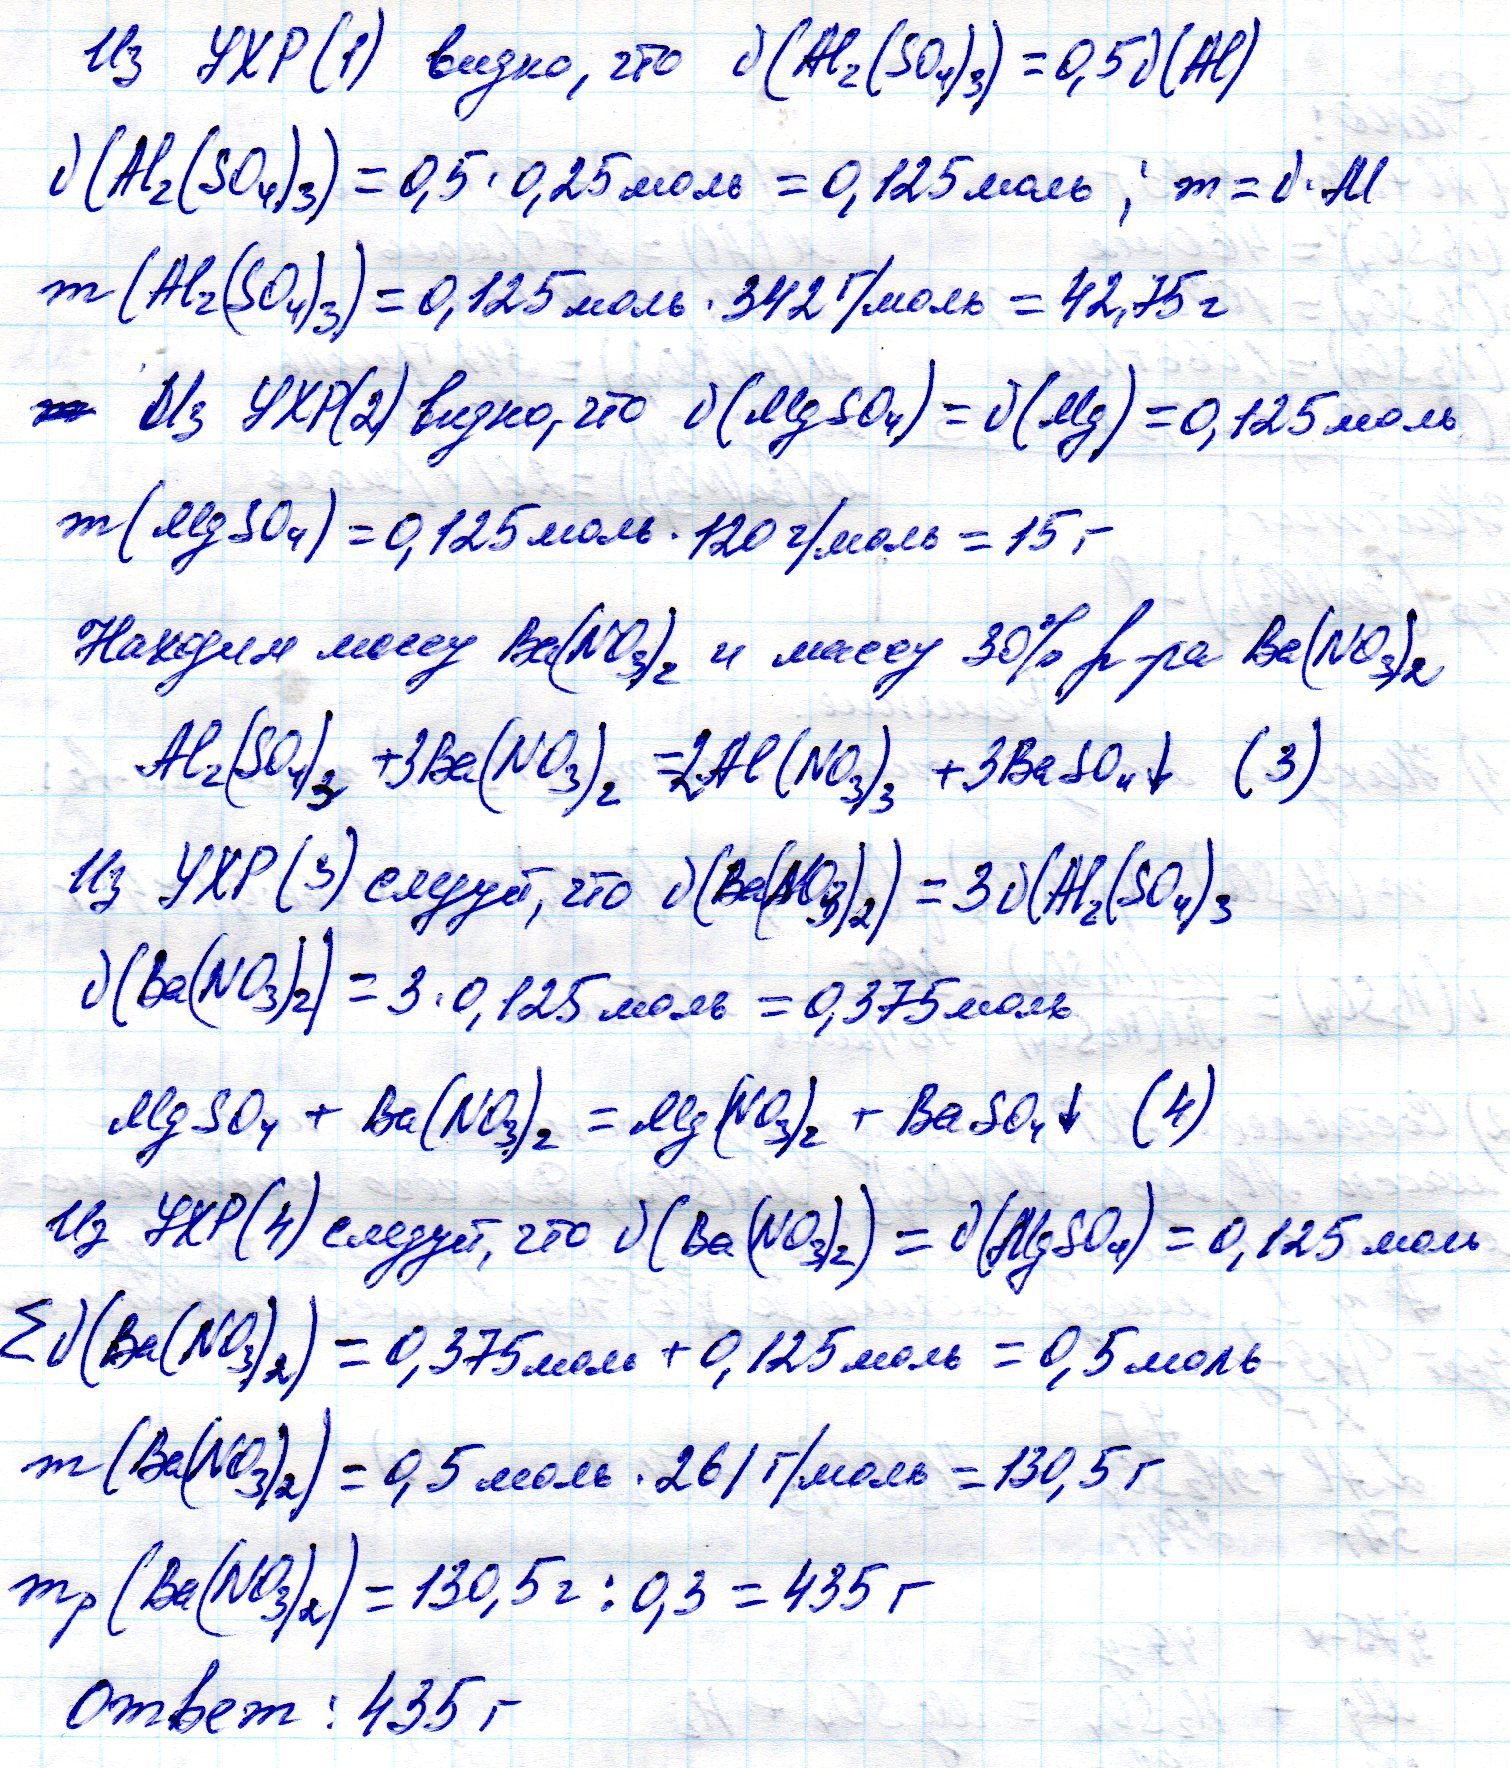 Из УХР(1) видно, что ν(Al₂(SO₄)₃) = 0,5ν(Al)
ν(Al₂(SO₄)₃) = 0,5·0,25моль = 0,125моль; m = ν·M
m(Al₂(SO₄)₃) = 0,125моль·342г/моль = 42,75г
Из УХР(2) видно, что ν(MgSO₄) = ν(Mg) = 0,125моль
m(MgSO₄) = 0,125моль·120г/моль = 15г
Находим массу Ba(NO₃)₂ и массу 30% р-ра Ba(NO₃)₂
Al₂(SO₄)₃ + 3Ba(NO₃)₂ = 2Al(NO₃)₃ + 3BaSO₄↓ (3)
Из УХР(3) следует, что ν(Ba(NO₃)₂) = 3ν(Al₂(SO₄)₃
ν(Ba(NO₃)₂) = 3·0,125моль = 0,375моль
MgSO₄ + Ba(NO₃)₂ = Mg(NO₃)₂ + BaSO₄↓ (4)
Из УХР(4) следует, что ν(Ba(NO₃)₂) = ν(MgSO₄) = 0,125моль
Σν(Ba(NO₃)₂) = 0,375моль + 0,125моль = 0,5моль
m(Ba(NO₃)₂) = 0,5моль·261г/моль = 130,5г
mр(Ba(NO₃)₂) = 130,5г : 0,3 = 435г
Ответ: 435г